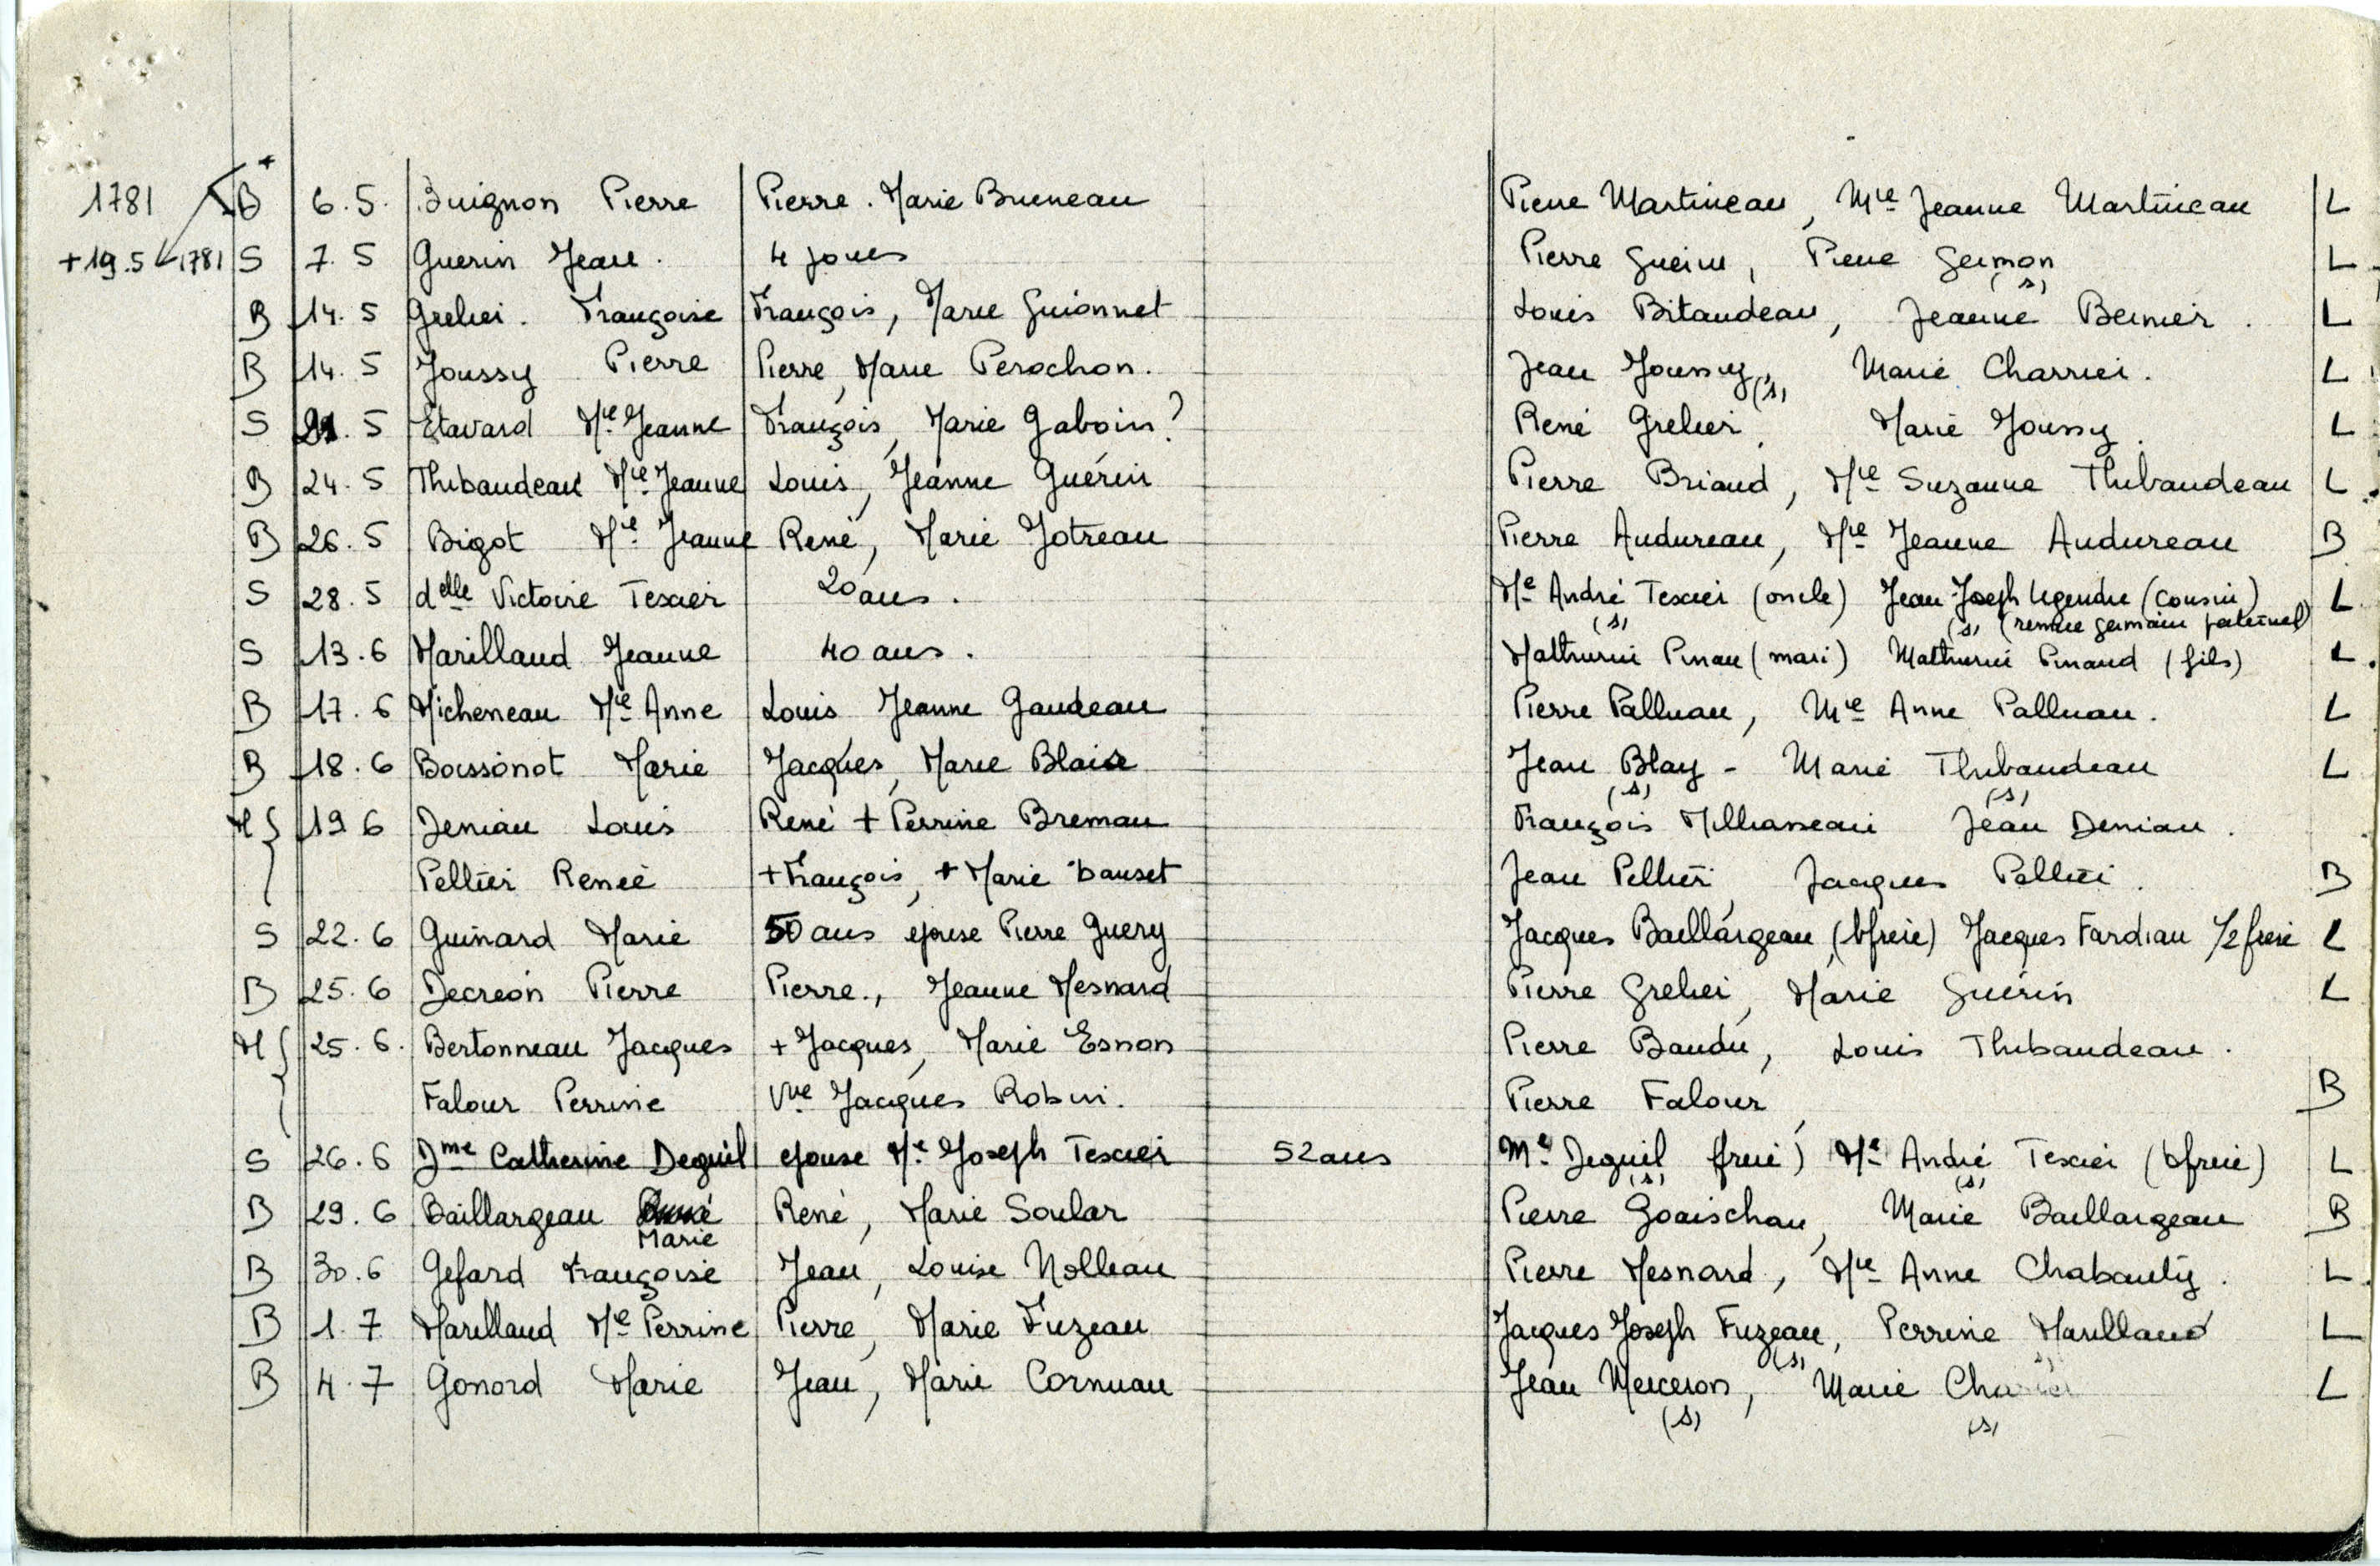 1781 B + 6.5. Guignon Pierre Pierre. Marie Bruneau Pierre Martineau, Mie Jeanne Martineau L
+19.5 1781 S 7.5 Guerin Jean. 4 jours Pierre Guerin, Pierre Germon (s) L
B 14.5 Grelier. Françoise François, Marie Guionnet Louis Bitaudeau, Jeanne Bernier. L
B 14.5 Joussy Pierre Pierre, Marie Perochon. Jean Joussy, (s) Marie Charrier. L
S 21.5 Etavard Mie Jeanne François, Marie Gaboin? René Grelier, Marie Joussy. L
B 24.5 Thibaudeau Mie Jeanne Louis, Jeanne Guérin Pierre Briaud, Mie Suzanne Thibaudeau L
B 26.5 Bigot Mie Jeanne René, Marie Jotreau Pierre Audureau, Mie Jeanne Audureau B
S 28.5 delle Victoire Texier 20 ans. Me André Texier (oncle) (s) Jean-Joseph Legendre (cousin) L
(s) (remue germain paternel)
S 13.6 Marillaud Jeanne 40 ans. Mathurin Pinau (mari) Mathurin Pinaud (fils) L
B 17.6 Micheneau Mie Anne Louis Jeanne Gaudeau Pierre Palluau, Mie Anne Palluau. L
B 18.6 Boissonot Marie Jacques, Marie Blais Jean Blay - Marie Thibaudeau L
(s) (s)
M 19 6 Deniau Louis René + Perrine Bremau François Milhasseau Jean Deniau.
Pellier Renée + François, + Marie Dauset Jean Pellier, Jacques Pellier. B
S 22.6 Guinard Marie 50 ans épouse Pierre Guery Jacques Baillargeau, (bfrère) Jacques Fardiau 1/2 frère L
B 25.6 Decreon Pierre Pierre., Jeanne Mesnard Pierre Grelier, Marie Guérin L
M 25.6. Bertonneau Jacques + Jacques, Marie Esnon Pierre Baudu, Louis Thibaudeau.
Falour Perrine Vve Jacques Robin. Pierre Falour, B
S 26.6 Dme Catherine Deguil epouse Me Joseph Texier 52 ans Me Deguil frère) Me André Texier (bfrère) L
(s) (s)
B 29.6 Baillargeau Marie René, Marie Soular Pierre Goaischau, Marie Baillargeau B
B 30.6 Gefard Françoise Jean, Louise Nolleau Pierre Mesnard, Mie Anne Chabauty. L
B 1.7 Marillaud Mie Perrine Pierre, Marie Fuzeau Jacques Joseph Fuzeau, Perrine Marillaud L
(s) (s)
B 4.7 Gonord Marie Jean, Marie Cornuau Jean Merceron, Marie L
(s) (s)